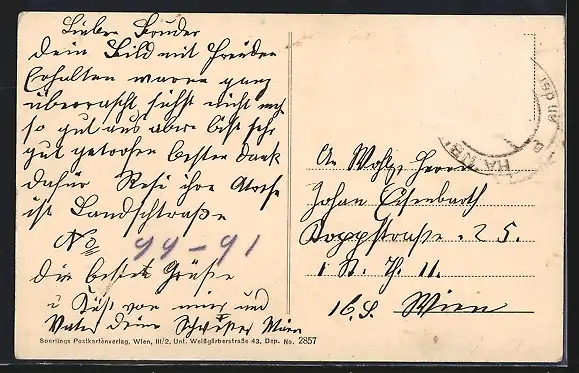 Lieber Bruder
dein Bild mit Freuden
Erhalten waren ganz
überrascht siehst nicht
so gut aus aber bist sehr
gut getrofen besten dank
dafür Resi ihre
ist Landschtraße
No 99-91
die besten Grüße
u Küße von mir und
Vater deine Schwester
Sperlings Postkartenverlag, Wien, III/2, Unt. Weißgärberstraße 43. Dep. No. 2857
An Wohlg. Herrn
Johan Eisenbarth
Koppstraße . 25.
1 St. Th. 11.
16. Wien